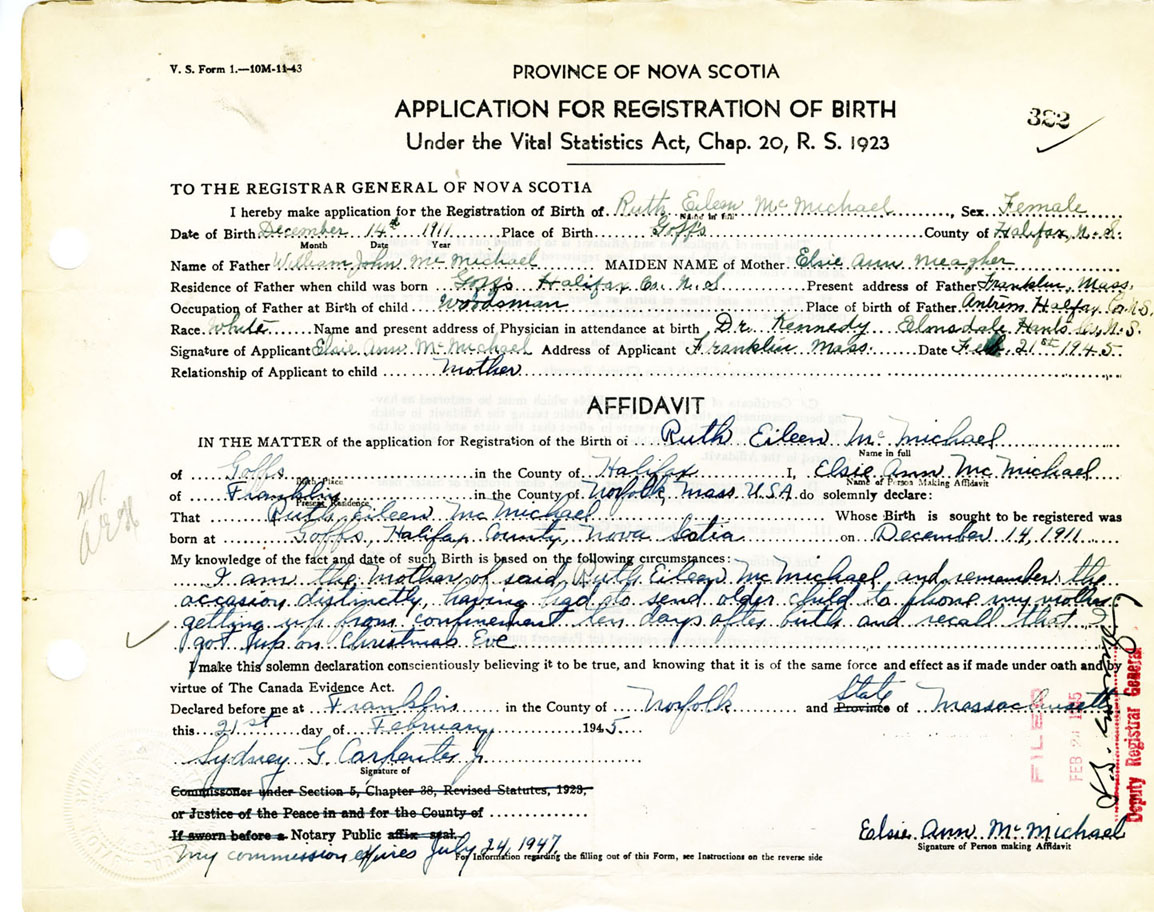 V. S. Form 1.—10M-11-43
PROVINCE OF NOVA SCOTIA
APPLICATION FOR REGISTRATION OF BIRTH
382
Under the Vital Statistics Act, Chap. 20, R. S. 1923
TO THE REGISTRAR GENERAL OF NOVA SCOTIA
I hereby make application for the Registration of Birth of Ruth Eileen McMichael, Sex Female
Name in full
Date of Birth December 14th 1911 Place of Birth Goffs County of Halifax, N.S.
Month Date Year
Name of Father William John McMichael MAIDEN NAME of Mother Elsie Ann Meagher
Residence of Father when child was born Goffs Halifax Co. N.S Present address of Father Franklin, Mass.
Occupation of Father at Birth of child Woodsman Place of birth of Father Antrim Halifax Co. N.S.
Race White Name and present address of Physician in attendance at birth Dr. Kennedy Elmsdale Hants Co. N.S.
Signature of Applicant Elsie Ann McMichael Address of Applicant Franklin Mass. Date Feb. 21st 1945
Relationship of Applicant to child Mother
AFFIDAVIT
IN THE MATTER of the application for Registration of the Birth of Ruth Eileen McMichael
Name in full
of Goffs in the County of Halifax I, Elsie Ann McMichael
Birth Place Name of Person Making Affidavit
of Franklin in the County of Norfolk, Mass. U.S.A. do solemnly declare:
Present Residence
That Ruth Eileen McMichael Whose Birth is sought to be registered was
born at Goffs, Halifax County, Nova Scotia on December 14, 1911
My knowledge of the fact and date of such Birth is based on the following circumstances:
I am the mother of said Ruth Eileen McMichael and remember the
occasion distinctly, having had to send older child to phone my
getting up from confinement ten days after birth and recall that I
got up on Christmas Eve
I make this solemn declaration conscientiously believing it to be true, and knowing that it is of the same force and effect as if made under oath and by
virtue of The Canada Evidence Act.
Declared before me at Franklin in the County of Norfolk and Province State of Massachusetts
this 21st day of February 1945
Sydney G. Carpenter Jr
Signature of
Commissoner under Section 5, Chapter 38, Revised Statutes, 1923,
or Justice of the Peace in and for the County of
If sworn before a Notary Public affix seal.
My commission expires July 24, 1947
Elsie Ann McMichael
Signature of Person making Affidavit
For Information regarding the filling out of this Form, see Instructions on the reverse side
FILED
FEB 24 1945
Deputy Registrar General